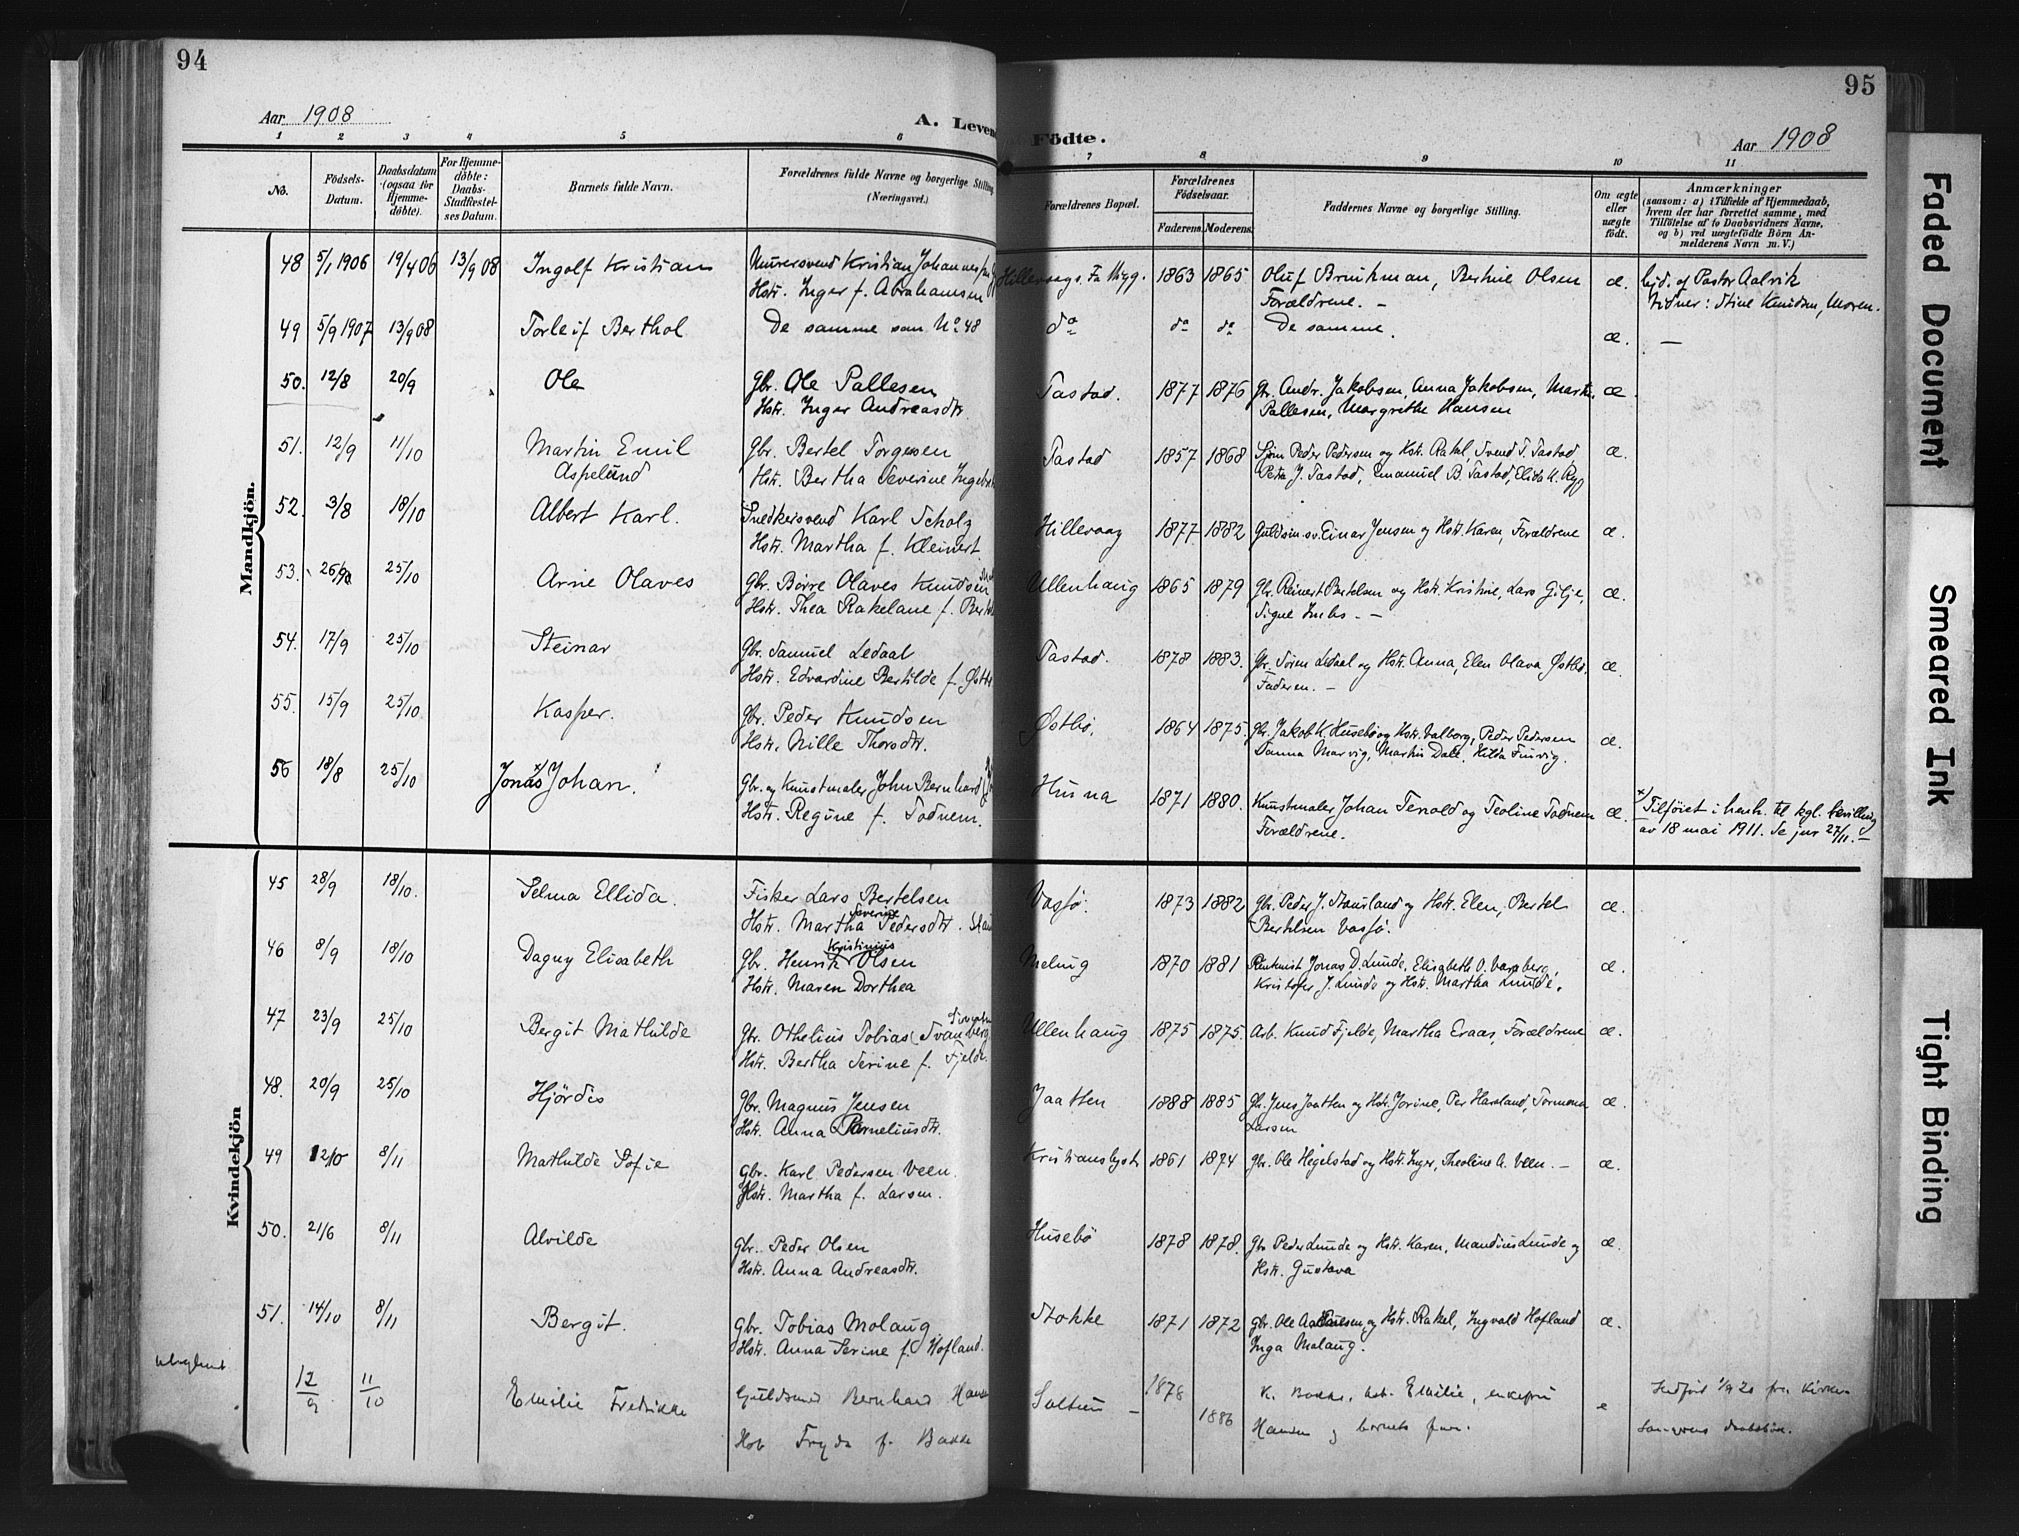 94
95
Aar 1908
A. Levende Födte.
Aar 1908
1 2 3 4 5 6 7 8 9 10 11
No.
Födsels-Datum.
Daabsdatum (ogsaa for Hjemme-döbte).
For Hjemme-döbte: Daabs-Stadfæstel-ses Datum.
Barnets fulde Navn.
Forældrenes fulde Navne og borgerlige Stilling (Næringsvei.)
Forældrenes Bopæl.
Forældrenes Födselsaar.
Faderens. Moderens.
Faddernes Navne og borgerlige Stilling.
Om ægte eller uægte födt.
Anmærkninger
(saasom: a) i Tilfælde af Hjemmedaab,
hvem der har forrettet samme, med
Tilföielse af to Daabsvidners Navne,
og b) ved uægtefödte Börn An-
melderens Navn m. V.)
Mandkjön.
48 5/1 1906 19/4 06 13/9 08 Ingolf Kristian Murersvend Kristian Johannes Hillevaag 1863 1865 Oluf Brinkman, Bertine Olsen æ. hjd. af Pastor Aalvik
Hstr. Inger f. Abrahamsen Forældrene. – Vidner: Stine Knudsen, Moren.
49 5/9 1907 13/9 08 Torleif Berthol De samme som No 48 do do do De samme. æ. –
50. 12/8 20/9 Ole Gbr. Ole Pallesen Tastad. 1877 1876 Gbr. Andr. Jakobsen, Anna Jakobsen, æ.
Hstr. Inger Andreasdtr. Pallesen, Margrethe Hansen
51. 12/9 11/10 Martin Emil Gbr. Bertel Torgersen Tastad 1857 1868 Peder Pedersen og Hstr. Rakel, Svend T. Tastad æ.
Aspelund Hstr. Bertha Severine Petra J. Tastad, Emanuel B. Tastad,
52. 3/8 18/10 Albert Karl. Snedkersvend Karl Scholz Hillevaag 1877 1882 Guldsm.sv. Einar Jensen og Hstr. Karen, Forældrene æ.
Hstr. Martha f. Kleinert.
53. 25/10 Arne Olaves Gbr. Börre Olaves Knudsen Ullenhaug 1865 1879 Gbr. Reinert Bertelsen og Hstr. Kristine, Lars Gilje, æ.
Hstr. Thea Rakelane f. Signe –
54. 17/9 25/10 Steinar Gbr. Samuel Ledaal Tastad. 1878 1883. Gbr. Sören Ledaal og Hstr. Anna, Elen Olava Østbö, æ.
Hstr. Edvardine Bertilde f. Faderen. –
55. 15/9 25/10 Kasper. Gbr. Peder Knudsen Østbö. 1864 1875. Gbr. Jakob K. Husebö og Hstr. Valborg, Peder Pedersen æ.
Hstr. Nille Thorsdtr. Martin Dale,
56 18/8 25/10 Jonas x Johan. Gbr. og Kunstmaler John Bernhard Husna 1871 1880. Kunstmaler Johan Tenold og Teoline Todnem æ. x Tilføiet i henh. til kgl. bevilling
Hstr. Regine f. Todnem. Forældrene. av 18 mai 1911. Se jnr 27/11. –
Kvindekjön
45 28/9 18/10. Selma Ellida. Fisker Lars Bertelsen Vasjö. 1873 1882 Gbr. Peder J. og Hstr. Elen, Bertel æ.
Hstr. Martha Severine Pedersdtr. Bertelsen Vasjö.
46 8/9 18/10 Dagny Elisabeth Gbr. Henrik Kristinius Olsen 1870 1881 Jonas D. Lunde, Elisabeth O. æ.
Hstr. Maren Dorthea Kristofer J. Lunde og Hstr. Martha Lunde.
47 23/9 25/10 Bergit Mathilde Gbr. Othelius Tobias Svanberg Ullenhaug 1875 1875. Arb. Knud Fjelde, Martha Eraas, Forældrene æ.
Hstr. Bertha Serine f. Fjelde
48. 20/9 25/10 Hjördis Gbr. Magnus Jensen Jaatten 1888 1885 Gbr. Jens Jaatten og Hstr. Jorine, Per Haraland, æ.
Hstr. Anna Larsen
49 12/10 8/11 Mathilde Sofie Gbr. Karl Pedersen Veen. Kristianslyst 1861 1874 Gbr. Ole Hegelstad og Hstr. Inger, Theoline A. Veen. – æ.
Hstr. Martha f. Larsen.
50. 21/6 8/11 Alvilde Gbr. Peder Olsen Husebö 1878 1878. Gbr. Peder Lunde og Hstr. Karen, Mandius Lunde og æ.
Hstr. Anna Andreasdtr. Hstr. Gustava
51. 14/10 8/11 Bergit. Gbr. Tobias Molaug Stokke 1871 1872 Gbr. Ole og Hstr. Rakel, Ingvald Hofland æ.
Hstr. Anna Serine f. Hofland. Inga Molaug.
12/9 11/10 Emilie Fredrikke Guldsmed Bernhard Hansen 1878 1886 K. Bakke, Emilie, enkefru e Indført 1/9 20 fra Kirke-
f. Bakke Hansen og barnets for. sangerens daabsbok.
Faded Document
Smeared Ink
Tight Binding